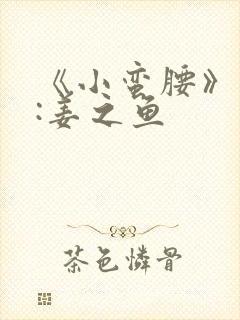 《小蛮腰》
:姜之鱼
茶色怜骨